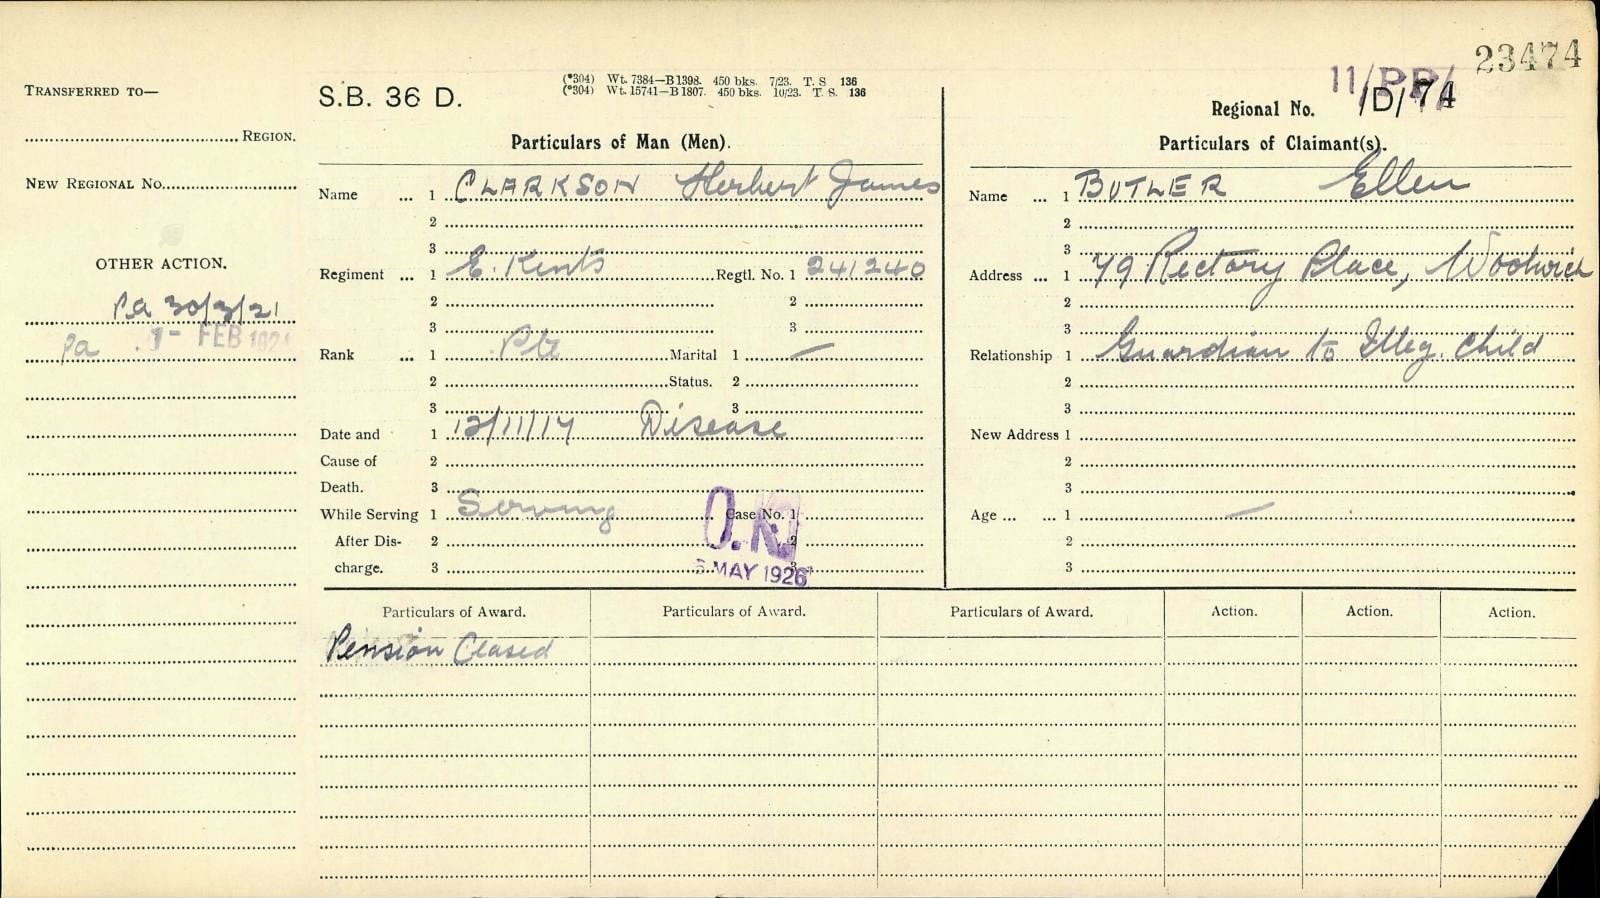 23474
TRANSFERRED TO—
REGION.
NEW REGIONAL No.
OTHER ACTION.
Pa 30/3/21
Pa FEB
S.B. 36 D.
(*304) Wt. 7384—B1398. 450 bks. 7/23. T. S. 136
(*304) Wt. 15741—B1807. 450 bks. 10/23. T. S. 136
Particulars of Man (Men).
Name ... 1 CLARKSON Herbert James
2
3
Regiment ... 1 E. Kents Regtl. No. 1 241240
2 2
3 3
Rank ... 1 Pte Marital 1 —
2 Status. 2
3 3
Date and 1 12/11/17 Disease
Cause of 2
Death. 3
While Serving 1 Serving Case No. 1
After Dis- 2 2
charge. 3 3
O.K.
5 MAY 1926
11/PP/
Regional No. /D/74
Particulars of Claimant(s).
Name ... 1 BUTLER Ellen
2
3
Address ... 1 79 Rectory Place, Woolwich
2
3
Relationship 1 Guardian to Illeg. Child
2
3
New Address 1
2
3
Age ... ... 1 —
2
3
Particulars of Award. Particulars of Award. Particulars of Award. Action. Action. Action.
Pension Ceased